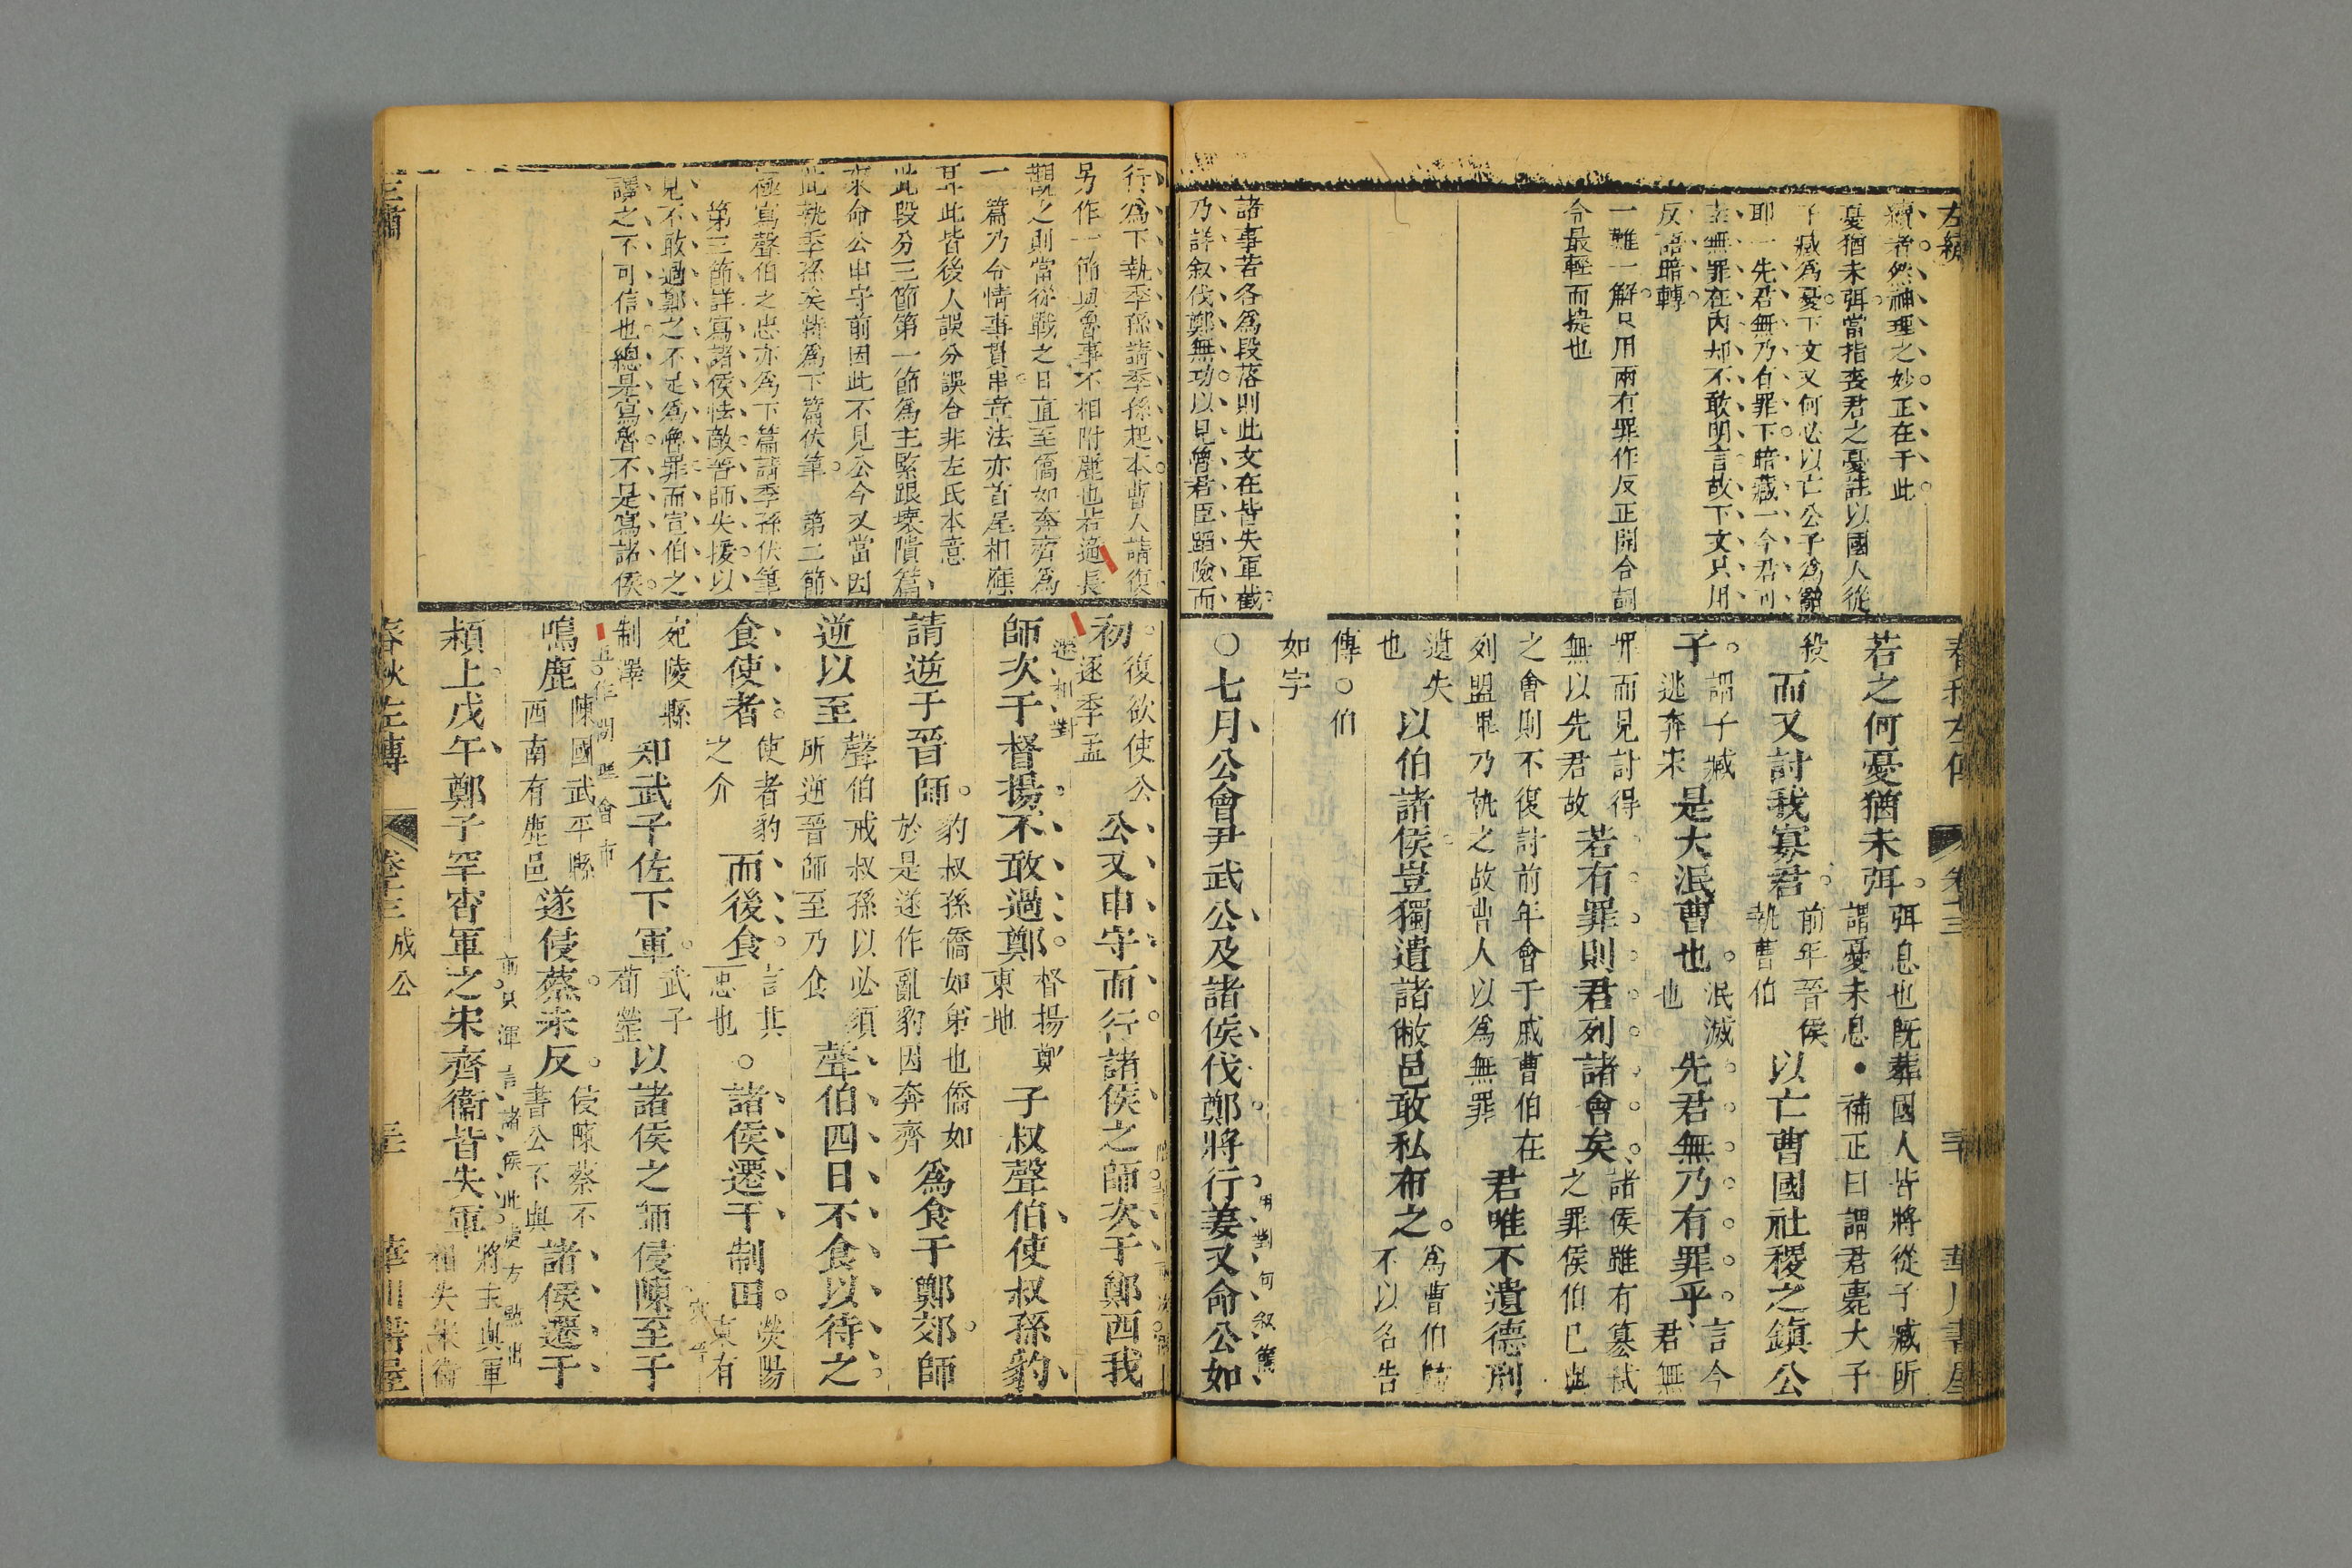 左繡
續者然神理之妙正在于此
憂猶未弭當指喪君之憂註以國人從
子臧為憂下文又何必以亡公子為辭
耶一先君無乃有罪下暗藏一今君可
幸無罪在內却不敢明言故下文只用
反語暗轉
一難一解只用兩有罪作反正開合詞
令最輕而捷也
諸事若各為段落則此文在皆失軍截
乃詳叙伐鄭無功以見魯君臣蹈險而
春秋左傳
卷十三
華川書屋
若之何憂猶未弭
弭息也既葬國人皆將從子臧所
謂憂未息●補正曰謂君薨大子
殺
而又討我寡君
前年晉侯
執曹伯
以亡曹國社稷之鎮公
子
謂子臧
逃奔宋
是大泯曹也
泯滅
也
先君無乃有罪乎
言今
君無
罪而見討得
無以先君故
若有罪則君列諸會矣
諸侯雖有篡弒
之罪侯伯已與
之會則不復討前年會于戚曹伯在
列盟畢乃執之故曹人以為無罪
君唯不遺德刑
遺失
也
以伯諸侯豈獨遺諸敝邑敢私布之
為曹伯歸
不以名告
傳○伯
如字
○七月公會尹武公及諸侯伐鄭將行姜又命公如
用對句叙
行為下執季孫請季孫起本曹人請復
另作一節與魯事不相附麗也若通長
觀之則當從戰之日直至僑如奔齊為
一篇乃令情事貫串章法亦首尾相應
耳此皆後人誤分誤合非左氏本意
此段分三節第一節為主緊跟壞隤篇
來命公申守前因此不見公今又當因
此執季孫矣特為下篇伏筆 第二節
極寫聲伯之忠亦為下篇請季孫伏筆
第三節詳寫諸侯怯敵晉師失援以
見不敢過鄭之不足為魯罪而宣伯之
譖之不可信也總是寫魯不是寫諸侯
初
復欲使公
逐季孟
公又申守而行諸侯之師次于鄭西我
師次于督揚不敢過鄭
督揚鄭
東地
子叔聲伯使叔孫豹
請逆于晉師
豹叔孫僑如弟也僑如
於是遂作亂豹因奔齊
為食于鄭郊師
逆以至
聲伯戒叔孫以必須
所逆晉師至乃食
聲伯四日不食以待之
食使者
使者豹
之介
而後食
言其
忠也
○諸侯遷于制田
滎陽
宛陵縣
東有
制澤
知武子佐下軍
武子
荀罃
以諸侯之師侵陳至于
鳴鹿
陳國武平縣
西南有鹿邑
遂侵蔡未反
侵陳蔡不
書公不與
諸侯遷于
前只渾言諸侯此處方點出
潁上戊午鄭子罕宵軍之宋齊衛皆失軍
將主與軍
相失宋衛
春秋左傳
卷十三 成公
華川書屋